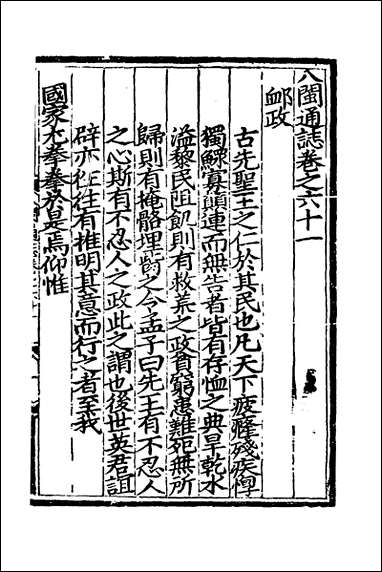 八閩通誌卷之六十一
䘏政
古先聖王之仁於其民也凡天下疲癃殘疾惸
獨鰥寡顛連而無告者皆有存恤之典旱乾水
溢黎民阻飢則有救荒之政貧窮患難死無所
歸則有掩骼埋胔之令孟子曰先王有不忍人
之心斯有不忍人之政此之謂也後世英君誼
辟亦往往有推明其意而行之者至我
國家尤拳拳於是焉仰惟